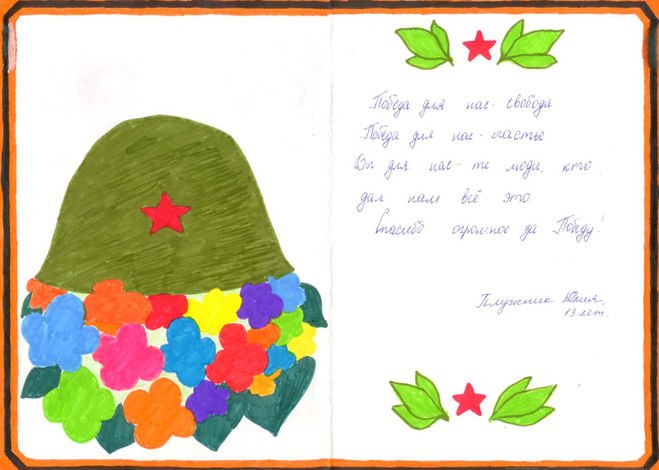 Победа для нас - свобода
Победа для нас - счастье
Вы для нас - те люди, кто
дал нам всё это
Спасибо огромное за Победу!
Плужник Юлия,
13 лет.